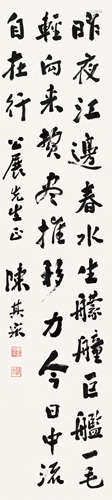 昨夜江邊春水生艨艟巨艦一毛
輕向来費盡推移力今日中流
自在行
公展先生正
陳其采